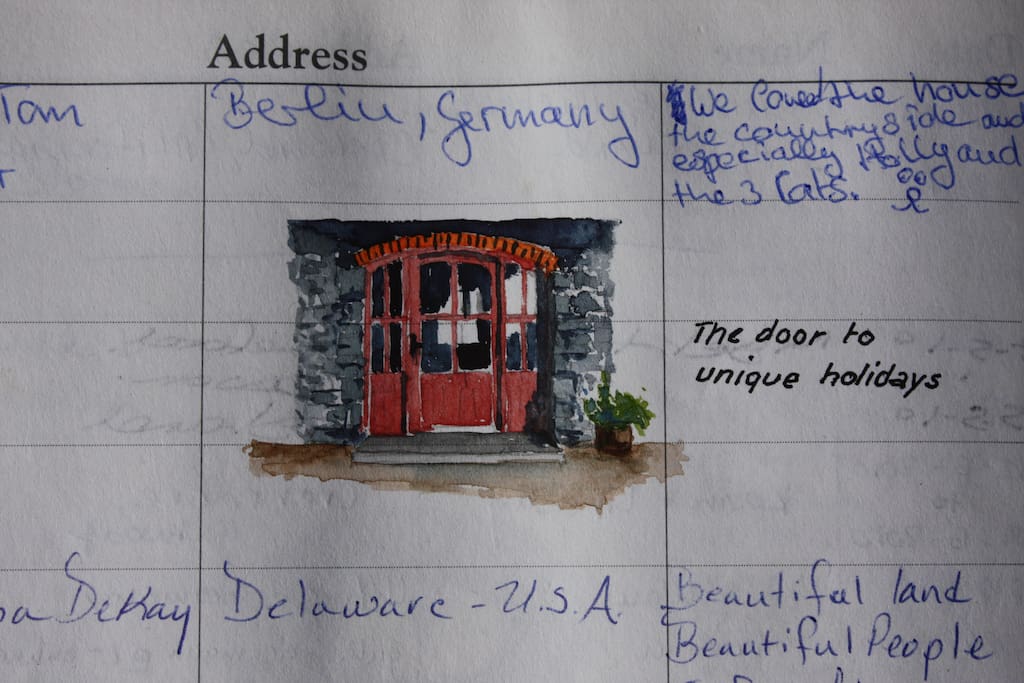 Address
Tom
Berlin, Germany
We loved the house
the countryside and
especially Holly and
the 3 Cats.
The door to
unique holidays
DeKay
Delaware - U.S.A.
Beautiful land
Beautiful People